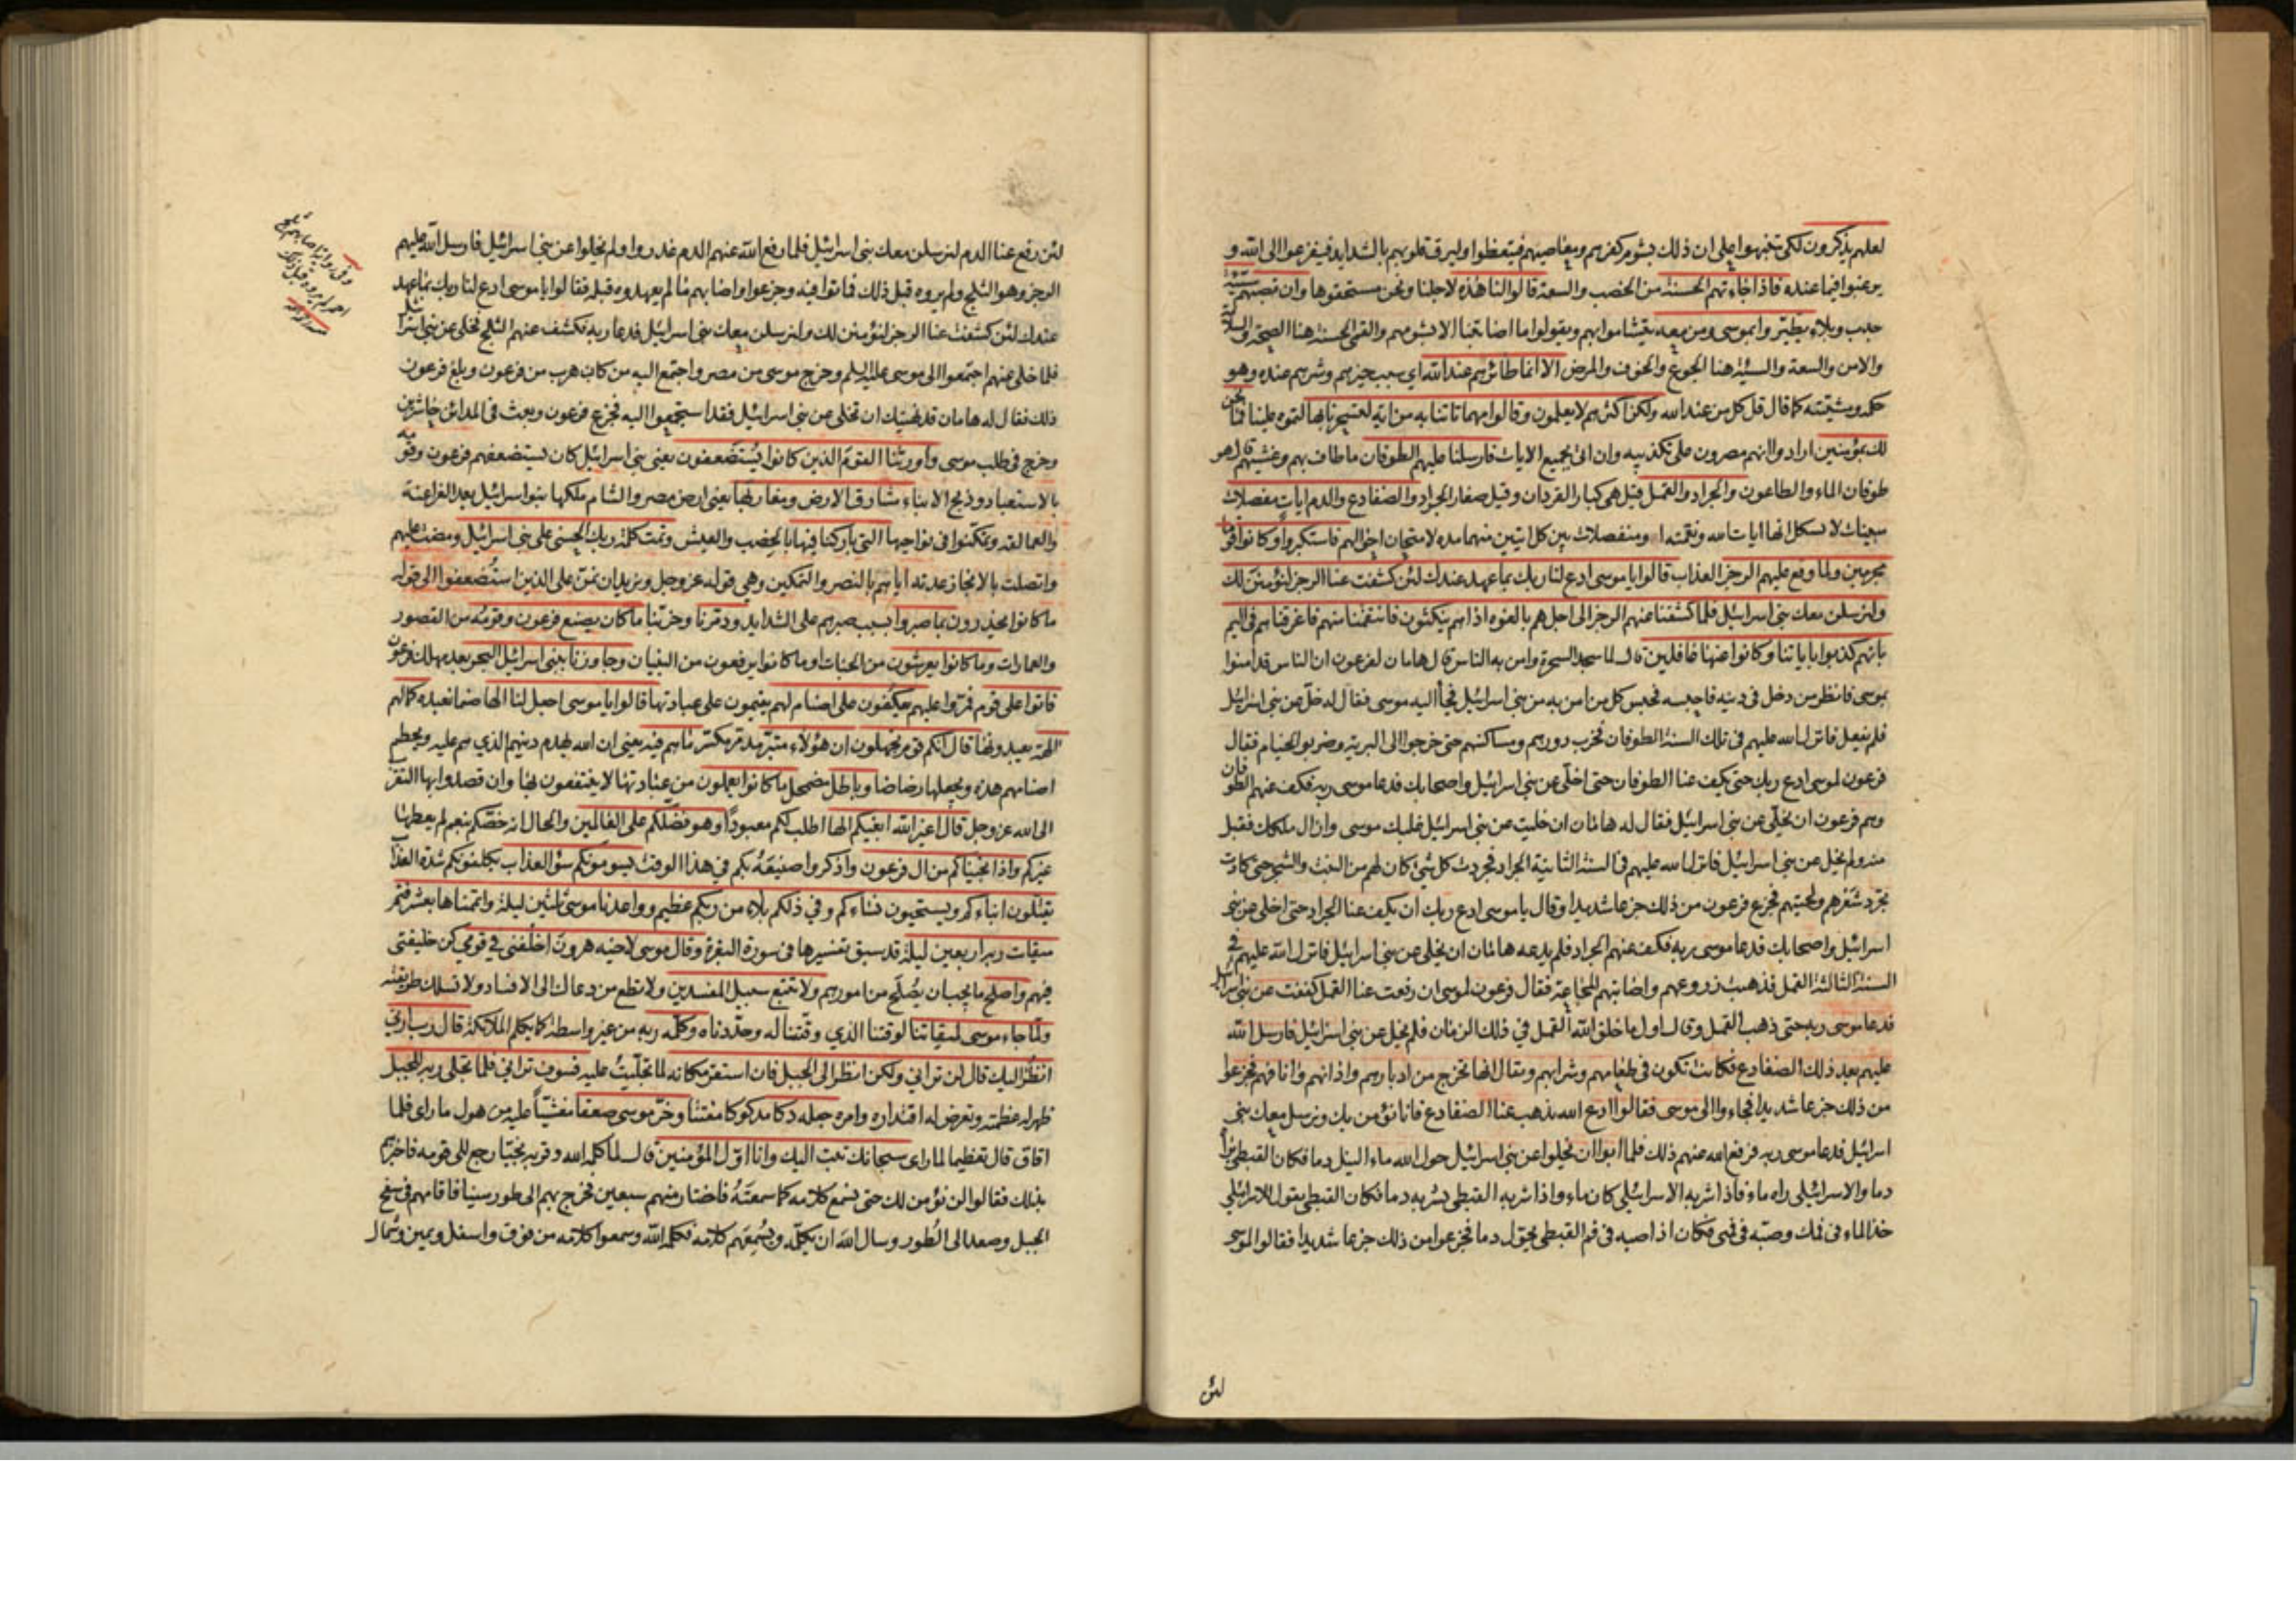 لعلهم يذكرون لكي يتنبهوا على ان ذلك بشوم كفرهم ومعاصيهم فيتعظوا وليرق قلوبهم بالشدايد فيفزعوا الى الله و
يرغبوا فيما عنده فاذا جاءتهم الحسنة من الخصب والسعة قالوا لنا هذه لاجلنا ونحن مستحقوها وان تصبهم سيئة
جدب وبلاء يطيروا بموسى ومن معه يتشاموا بهم ويقولوا ما اصابتنا الا بشومهم والقمي الحسنة هنا الصحة والسلامة
والامن والسعة والسيئة هنا الجوع والخوف والمرض الا انما طائرهم عند الله اي سبب خيرهم وشرهم عنده وهو
حكمه ومشيته كما قال قل كل من عند الله ولكن اكثرهم لا يعلمون وقالوا مهما تاتنا به من اية لتسحرنا بها لتموه علينا فما نحن
لك بمؤمنين ارادوا انهم مصرون على تكذيبه وان اتى بجميع الايات فارسلنا عليهم الطوفان ما طاف بهم وغشيهم قيل هو
طوفان الماء والطاعون والجراد والقمل قيل هي كبار القردان وقيل صغار الجراد والضفادع والدم ايات مفصلات
مبينات لا تشكل انها ايات الله ونقمته او منفصلات بين كل ايتين منها مدة لامتحان احوالهم فاستكبروا وكانوا قوما
مجرمين ولما وقع عليهم الرجز العذاب قالوا يا موسى ادع لنا ربك بما عهد عندك لئن كشفت عنا الرجز لنؤمنن لك
ولنرسلن معك بني اسرائيل فلما كشفنا عنهم الرجز الى اجل هم بالغوه اذا هم ينكثون فانتقمنا منهم فاغرقناهم في اليم
بانهم كذبوا باياتنا وكانوا عنها غافلين قال لما سجد السحرة وامن به الناس قال هامان لفرعون ان الناس قد امنوا
بموسى فانظر من دخل في دينه فاحبسه فحبس كل من امن به من بني اسرائيل فجأ اليه موسى فقال له خل عن بني اسرائيل
فلم يفعل فانزل الله عليهم في تلك السنة الطوفان فخرب دورهم ومساكنهم حتى خرجوا الى البرية وضربوا الخيام فقال
فرعون لموسى ادع ربك حتى يكف عنا الطوفان حتى اخلي عن بني اسرائيل واصحابك فدعا موسى ربه فكف عنهم الطوفان
وهم فرعون ان يخلي عن بني اسرائيل فقال له هامان ان خليت عن بني اسرائيل غلبك موسى وازال ملكك فقبل
منه ولم يخل عن بني اسرائيل فانزل الله عليهم في السنة الثانية الجراد فجردت كل شئ كان لهم من النبت والشجر حتى كادت
تجرد شعرهم ولحيتهم فجزع فرعون من ذلك جزعا شديدا وقال يا موسى ادع ربك ان يكف عنا الجراد حتى اخلي عن بني
اسرائيل واصحابك فدعا موسى ربه فكف عنهم الجراد فلم يدعه هامان ان يخلي عن بني اسرائيل فانزل الله عليهم في
السنة الثالثة القمل فذهبت زروعهم واصابتهم المجاعة فقال فرعون لموسى ان رفعت عنا القمل كففت عن بني اسرائيل
فدعا موسى ربه حتى ذهب القمل وقال اول ما خلق الله القمل في ذلك الزمان فلم يخل عن بني اسرائيل فارسل الله
عليهم بعد ذلك الضفادع فكانت تكون في طعامهم وشرابهم ويقال انها تخرج من ادبارهم واذانهم وانافهم فجزعوا
من ذلك جزعا شديدا فجاءوا الى موسى فقالوا ادع الله يذهب عنا الضفادع فانا نؤمن بك ونرسل معك بني
اسرائيل فدعا موسى ربه فرفع الله عنهم ذلك فلما ابوا ان يخلوا عن بني اسرائيل حول الله ماء النيل دما فكان القبطي يراه
دما والاسرائيلي راه ماء فاذا شربه الاسرائيلي كان ماء واذا شربه القبطي يشربه دما فكان القبطي يقول للاسرائيلي
خذ الماء في فمك وصبه في فمي فكان اذا صبه في فم القبطي تحول دما فجزعوا من ذلك جزعا شديدا فقالوا لموسى
لئن
لئن رفع عنا الدم لنرسلن معك بني اسرائيل فلما رفع الله عنهم الدم غدروا ولم يخلوا عن بني اسرائيل فارسل الله عليهم
الرجز وهو الثلج ولم يروه قبل ذلك فماتوا فيه وجزعوا واصابهم ما لم يعهدوه قبله فقالوا يا موسى ادع لنا ربك بما عهد
عندك لئن كشفت عنا الرجز لنؤمنن لك ولنرسلن معك بني اسرائيل فدعا ربه فكشف عنهم الثلج فخلى عن بني اسرائيل
فلما خلى عنهم اجتمعوا الى موسى عليه السلم وخرج موسى من مصر واجتمع اليه من كان هرب من فرعون وبلغ فرعون
ذلك فقال له هامان قد نهيتك ان تخلي عن بني اسرائيل فقد استجمعوا اليه فجزع فرعون وبعث في المدائن حاشرين
وخرج في طلب موسى واورثنا القوم الذين كانوا يستضعفون يعني بني اسرائيل كان يستضعفهم فرعون وقومه
بالاستعباد وذبح الابناء مشارق الارض ومغاربها يعني ارض مصر والشام ملكها بنو اسرائيل بعد الفراعنة
والعمالقة وتمكنوا في نواحيها التي باركنا فيها بالخصب والعيش وتمت كلمة ربك الحسنى على بني اسرائيل ومضت عليهم
واتصلت بالانجاز عدته اياهم بالنصر والتمكين وهي قوله عز وجل ونريد ان نمن على الذين استضعفوا الى قوله
ما كانوا يحذرون بما صبروا بسبب صبرهم على الشدايد ودمرنا وخربنا ما كان يصنع فرعون وقومه من القصور
والعمارات وما كانوا يعرشون من الجنات او ما كانوا يرفعون من البنيان وجاوزنا ببني اسرائيل البحر بعد مهلك فرعون
فاتوا على قوم فمروا عليهم يعكفون على اصنام لهم يقيمون على عبادتها قالوا يا موسى اجعل لنا الها صنما نعبده كما لهم
الهة يعبدونها قال انكم قوم تجهلون ان هؤلاء متبر مدمر مكسر ما هم فيه يعني ان الله يهدم دينهم الذي هم عليه ويحطم
اصنامهم هذه ويجعلها رضاضا وباطل مضمحل ما كانوا يعملون من عبادتها لا ينتفعون بها وان قصدوا بها التقرب
الى الله عز وجل قال اغير الله ابغيكم الها اطلب لكم معبودا وهو فضلكم على العالمين والحال انه خصكم بنعم لم يعطها
غيركم واذ انجيناكم من ال فرعون واذكروا صنيعه بكم في هذا الوقت يسومونكم سوء العذاب يكلفونكم شدة العذاب
يقتلون ابناءكم ويستحيون نساءكم وفي ذلكم بلاء من ربكم عظيم وواعدنا موسى ثلثين ليلة واتممناها بعشر فتم
ميقات ربه اربعين ليلة قد سبق تفسيرها في سورة البقرة وقال موسى لاخيه هرون اخلفني في قومي كن خليفتي
فيهم واصلح ما يجب ان يصلح من امورهم ولا تتبع سبيل المفسدين ولا تطع من دعاك الى الافساد ولا تسلك طريقته
ولما جاء موسى لميقاتنا لوقتنا الذي وقتنا له وحددناه وكلمه ربه من غير واسطة كما يكلم الملائكة قال رب ارني
انظر اليك قال لن تراني ولكن انظر الى الجبل فان استقر مكانه لما تجليت عليه فسوف تراني فلما تجلى ربه للجبل
ظهر له عظمته وتعرض له اقتداره وامره جعله دكا مدكوكا مفتتا وخر موسى صعقا مغشيا عليه من هول ما راى فلما
افاق قال تعظيما لما راى سبحانك تبت اليك وانا اول المؤمنين قال لما كلمه الله وقربه نجيا رجع الى قومه فاخبرهم
بذلك فقالوا لن نؤمن لك حتى نسمع كلامه كما سمعته فاختار منهم سبعين فخرج بهم الى طور سينا فاقامهم في سفح
الجبل وصعد الى الطور وسال الله ان يكلمه ويسمعهم كلامه فكلمه الله وسمعوا كلامه من فوق واسفل ويمين وشمال